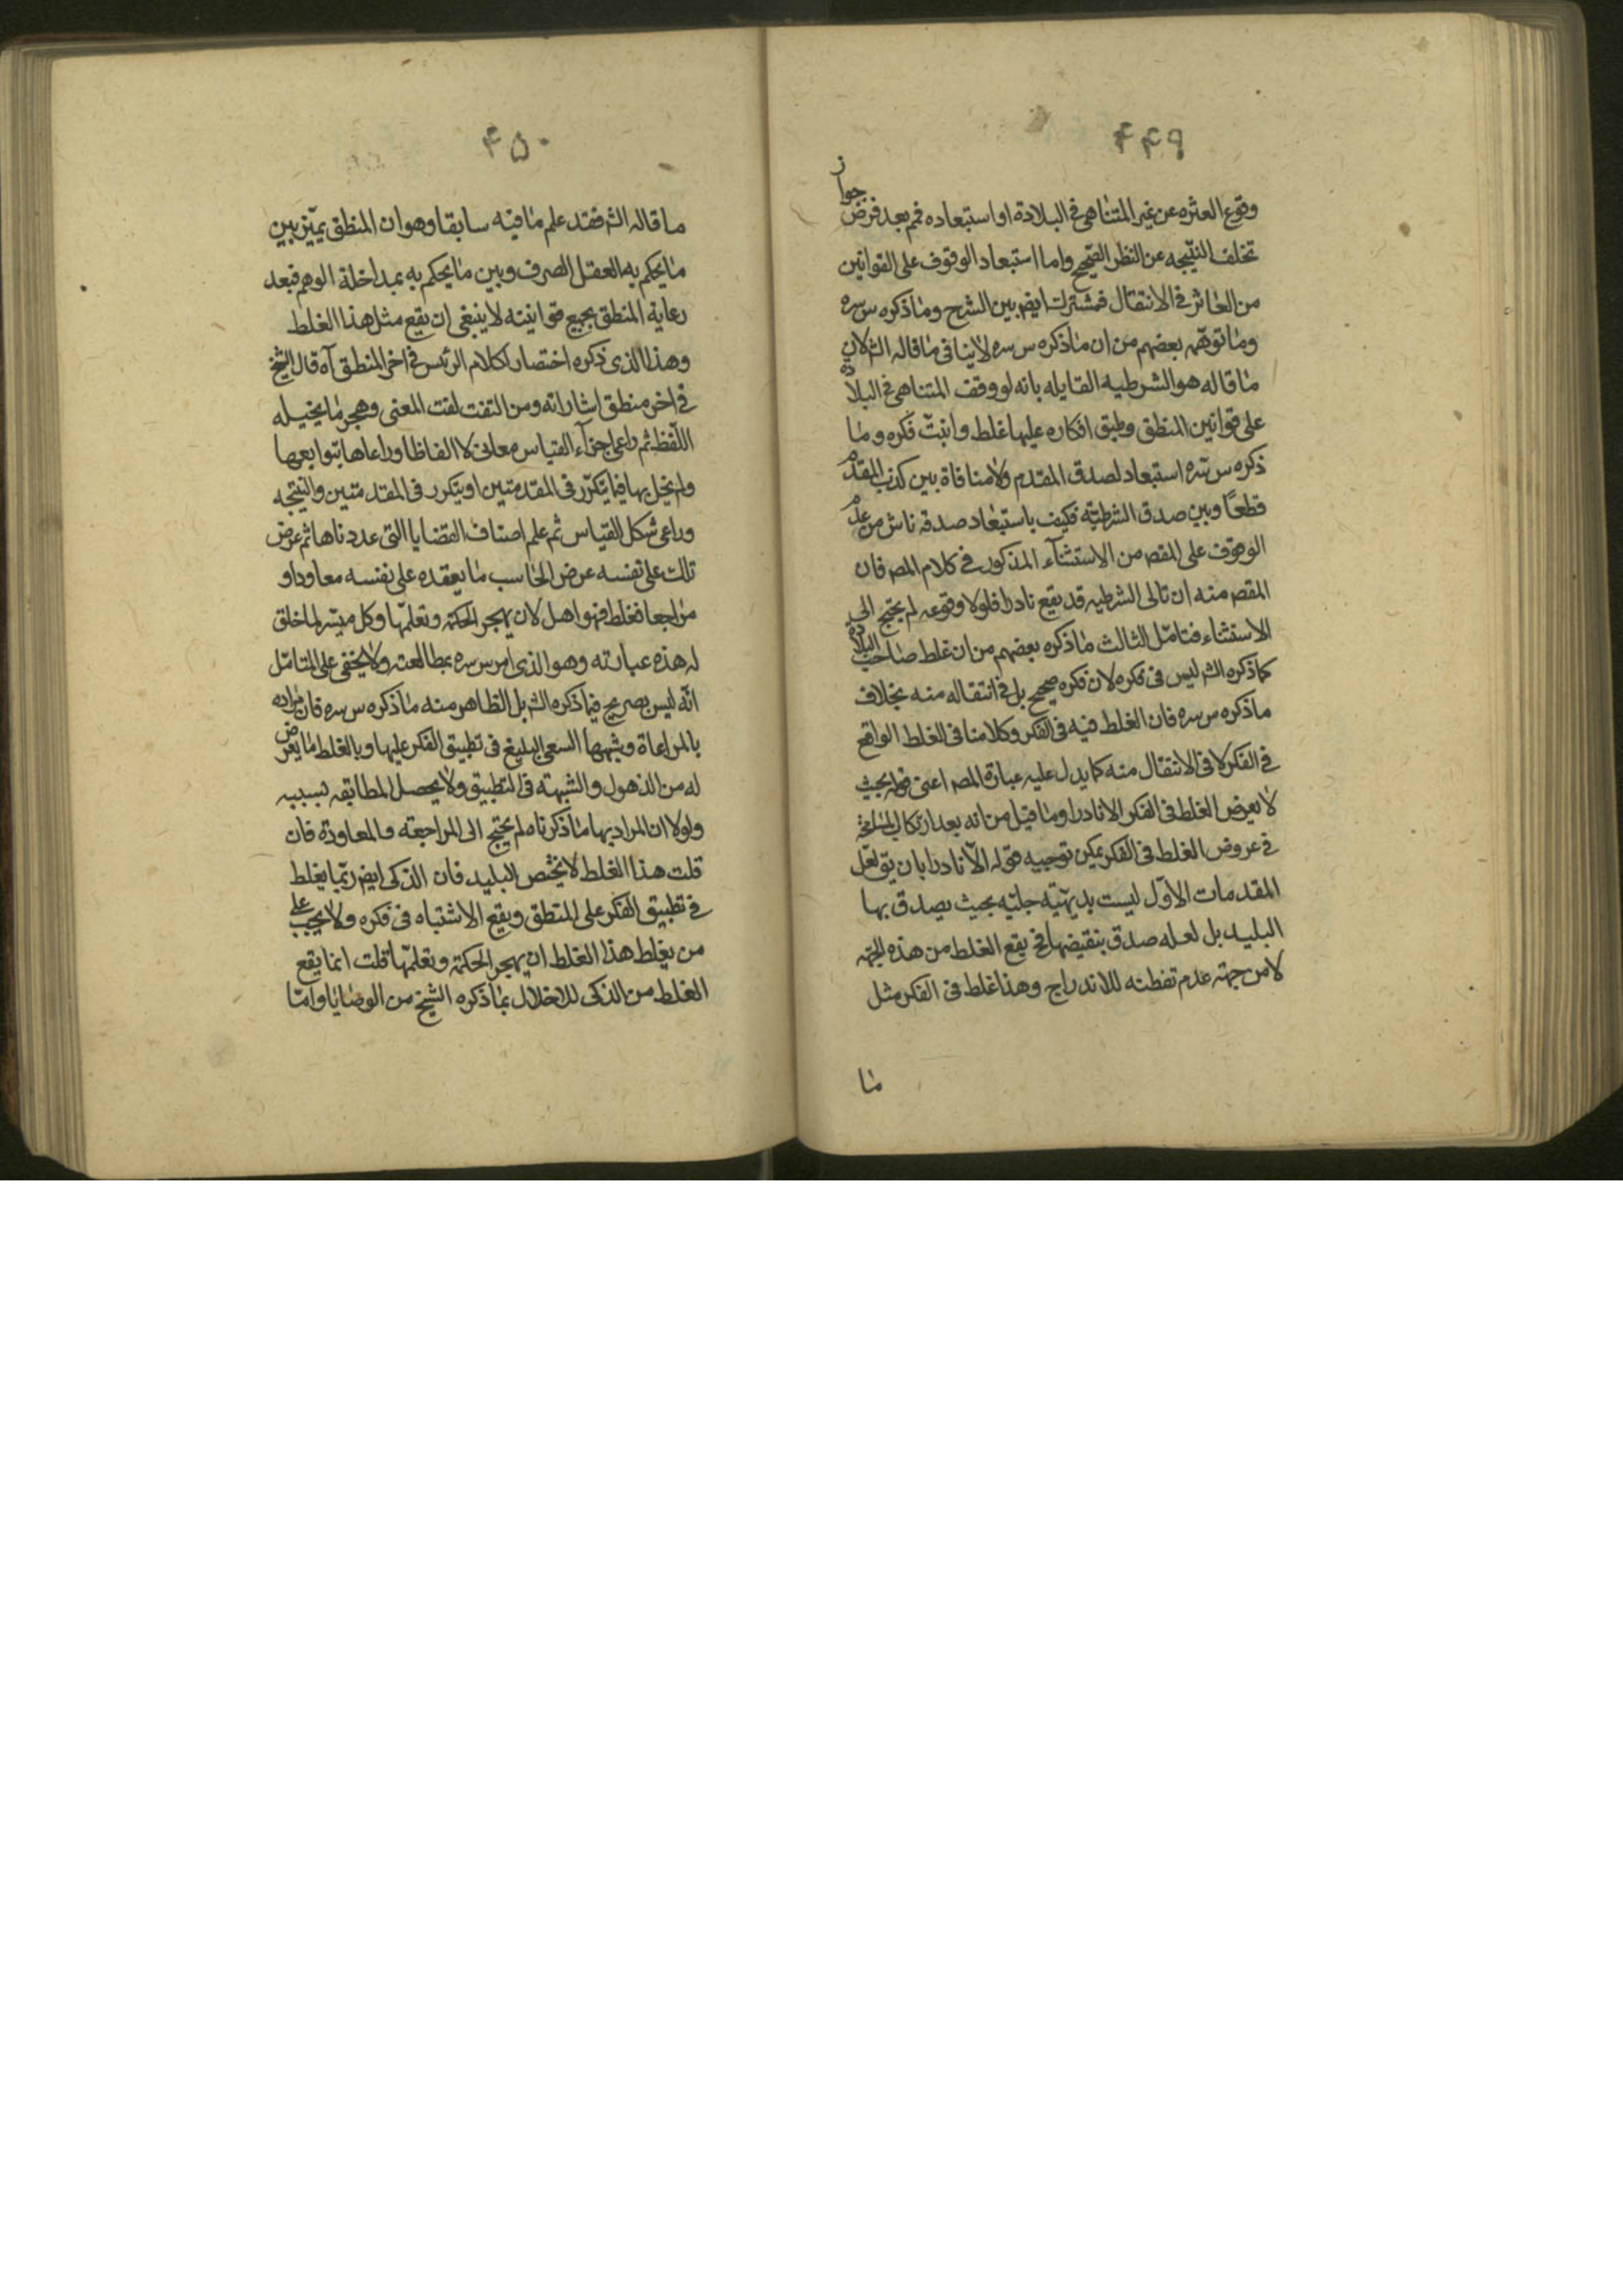 ۴۴۹
جواز
وقوع العثره عن غير المتناهى فى البلادة او استبعاده فم بعد فرض
تخلف النتيجه عن النظر الصحيح واما استبعاد الوقوف على القوانين
من العاثر فى الانتقال فمشترك ايض بين الشرح وما ذكره س سره
وما توهمه بعضهم من ان ما ذكره س سره لا ينافى ما قاله الش لان
ما قاله هو الشرطيه القايله بانه لو وقف المتناهى فى البلادة
على قوانين المنطق وطبق افكاره عليها غلط وانبت فكره وما
ذكره س سره استبعاد لصدق المقدم ولا منافاة بين كذب المقدم
قطعًا وبين صدق الشرطيّه فكيف باستبعاد صدقه ناش من عدم
الوقوف على المقص من الاستثنآء المذكور فى كلام المص فان
المقص منه ان تالى الشرطيه قد يقع نادرا فلولا وقوعه لم يحتج الى
الاستثناء فتامّل الثالث ما ذكره بعضهم من ان غلط صاحب البلادة
كما ذكره الش ليس فى فكره لان فكره صحيح بل فى انتقاله منه بخلاف
ما ذكره س سره فان الغلط فيه فى الفكر وكلامنا فى الغلط الواقع
فى الفكر لا فى الانتقال منه كما يدل عليه عبارة المص اعنى قوله بحيث
لا يعرض الغلط فى الفكر الا نادرا وما قيل من انه بعد ارتكاب المسامحة
فى عروض الغلط فى الفكر يمكن توجيه قوله الّا نادرا بان يق لعّل
المقدمات الاوّل ليست بديهيّه جليّه بحيث يصدق بها
البليد بل لعله صدق بنقيضها فح يقع الغلط من هذه الجهة
لا من جهة عدم تفطنه للاندراج وهذا غلط فى الفكر مثل
ما
۴۵۰
ما قاله الش فقد علم ما فيه سابقا وهو ان المنطق يميّز بين
ما يحكم به العقل الصرف وبين ما يحكم به بمداخلة الوهم فبعد
رعاية المنطق بجميع قوانينه لا ينبغى ان يقع مثل هذا الغلط
وهذا الذى ذكره اختصار لكلام الرئيس فى اخر المنطق آه قال الشيخ
فى اخر منطق اشاراته ومن التفت لفت المعنى وهجر ما يخيله
اللّفظ ثم راعى اجزآء القياس معانى لا الفاظا وراعاها بتوابعها
ولم يخل بها فيما يتكرّر فى المقدمتين او يتكرر فى المقدمتين والنتيجه
وراعى شكل القياس ثم علم اصناف القضايا التى عددناها ثم عرض
تلك على نفسه عرض الحاسب ما يعقده على نفسه معاودا و
مراجعا فغلط فهو اهل لان يهجر الحكمة وتعلمّها وكل ميسّر لما خلق
له هذه عبارته وهو الذى امر س سره بمطالعته ولا يخفى على المتامّل
انّه ليس بصريح فيما ذكره الش بل الظاهر منه ما ذكره س سره فان مراده
بالمراعاة وشبهها السعى البليغ فى تطبيق الفكر عليها وبالغلط ما يعرض
له من الذهول والشبهته فى التطبيق ولا يحصل المطابقه لسببه
ولولا ان المراد بها ما ذكرناه لم يحتج الى المراجعة والمعاودة فان
قلت هذا الغلط لا يختص البليد فان الذكى ايض ربّما يغلط
فى تطبيق الفكر على المنطق ويقع الاشتباه فى فكره ولا يجب على
من يغلط هذا الغلط ان يهجر الحكمة وتعلمّها قلت انما يقع
الغلط من الذكى للاخلال بما ذكره الشيخ من الوصايا وامّا